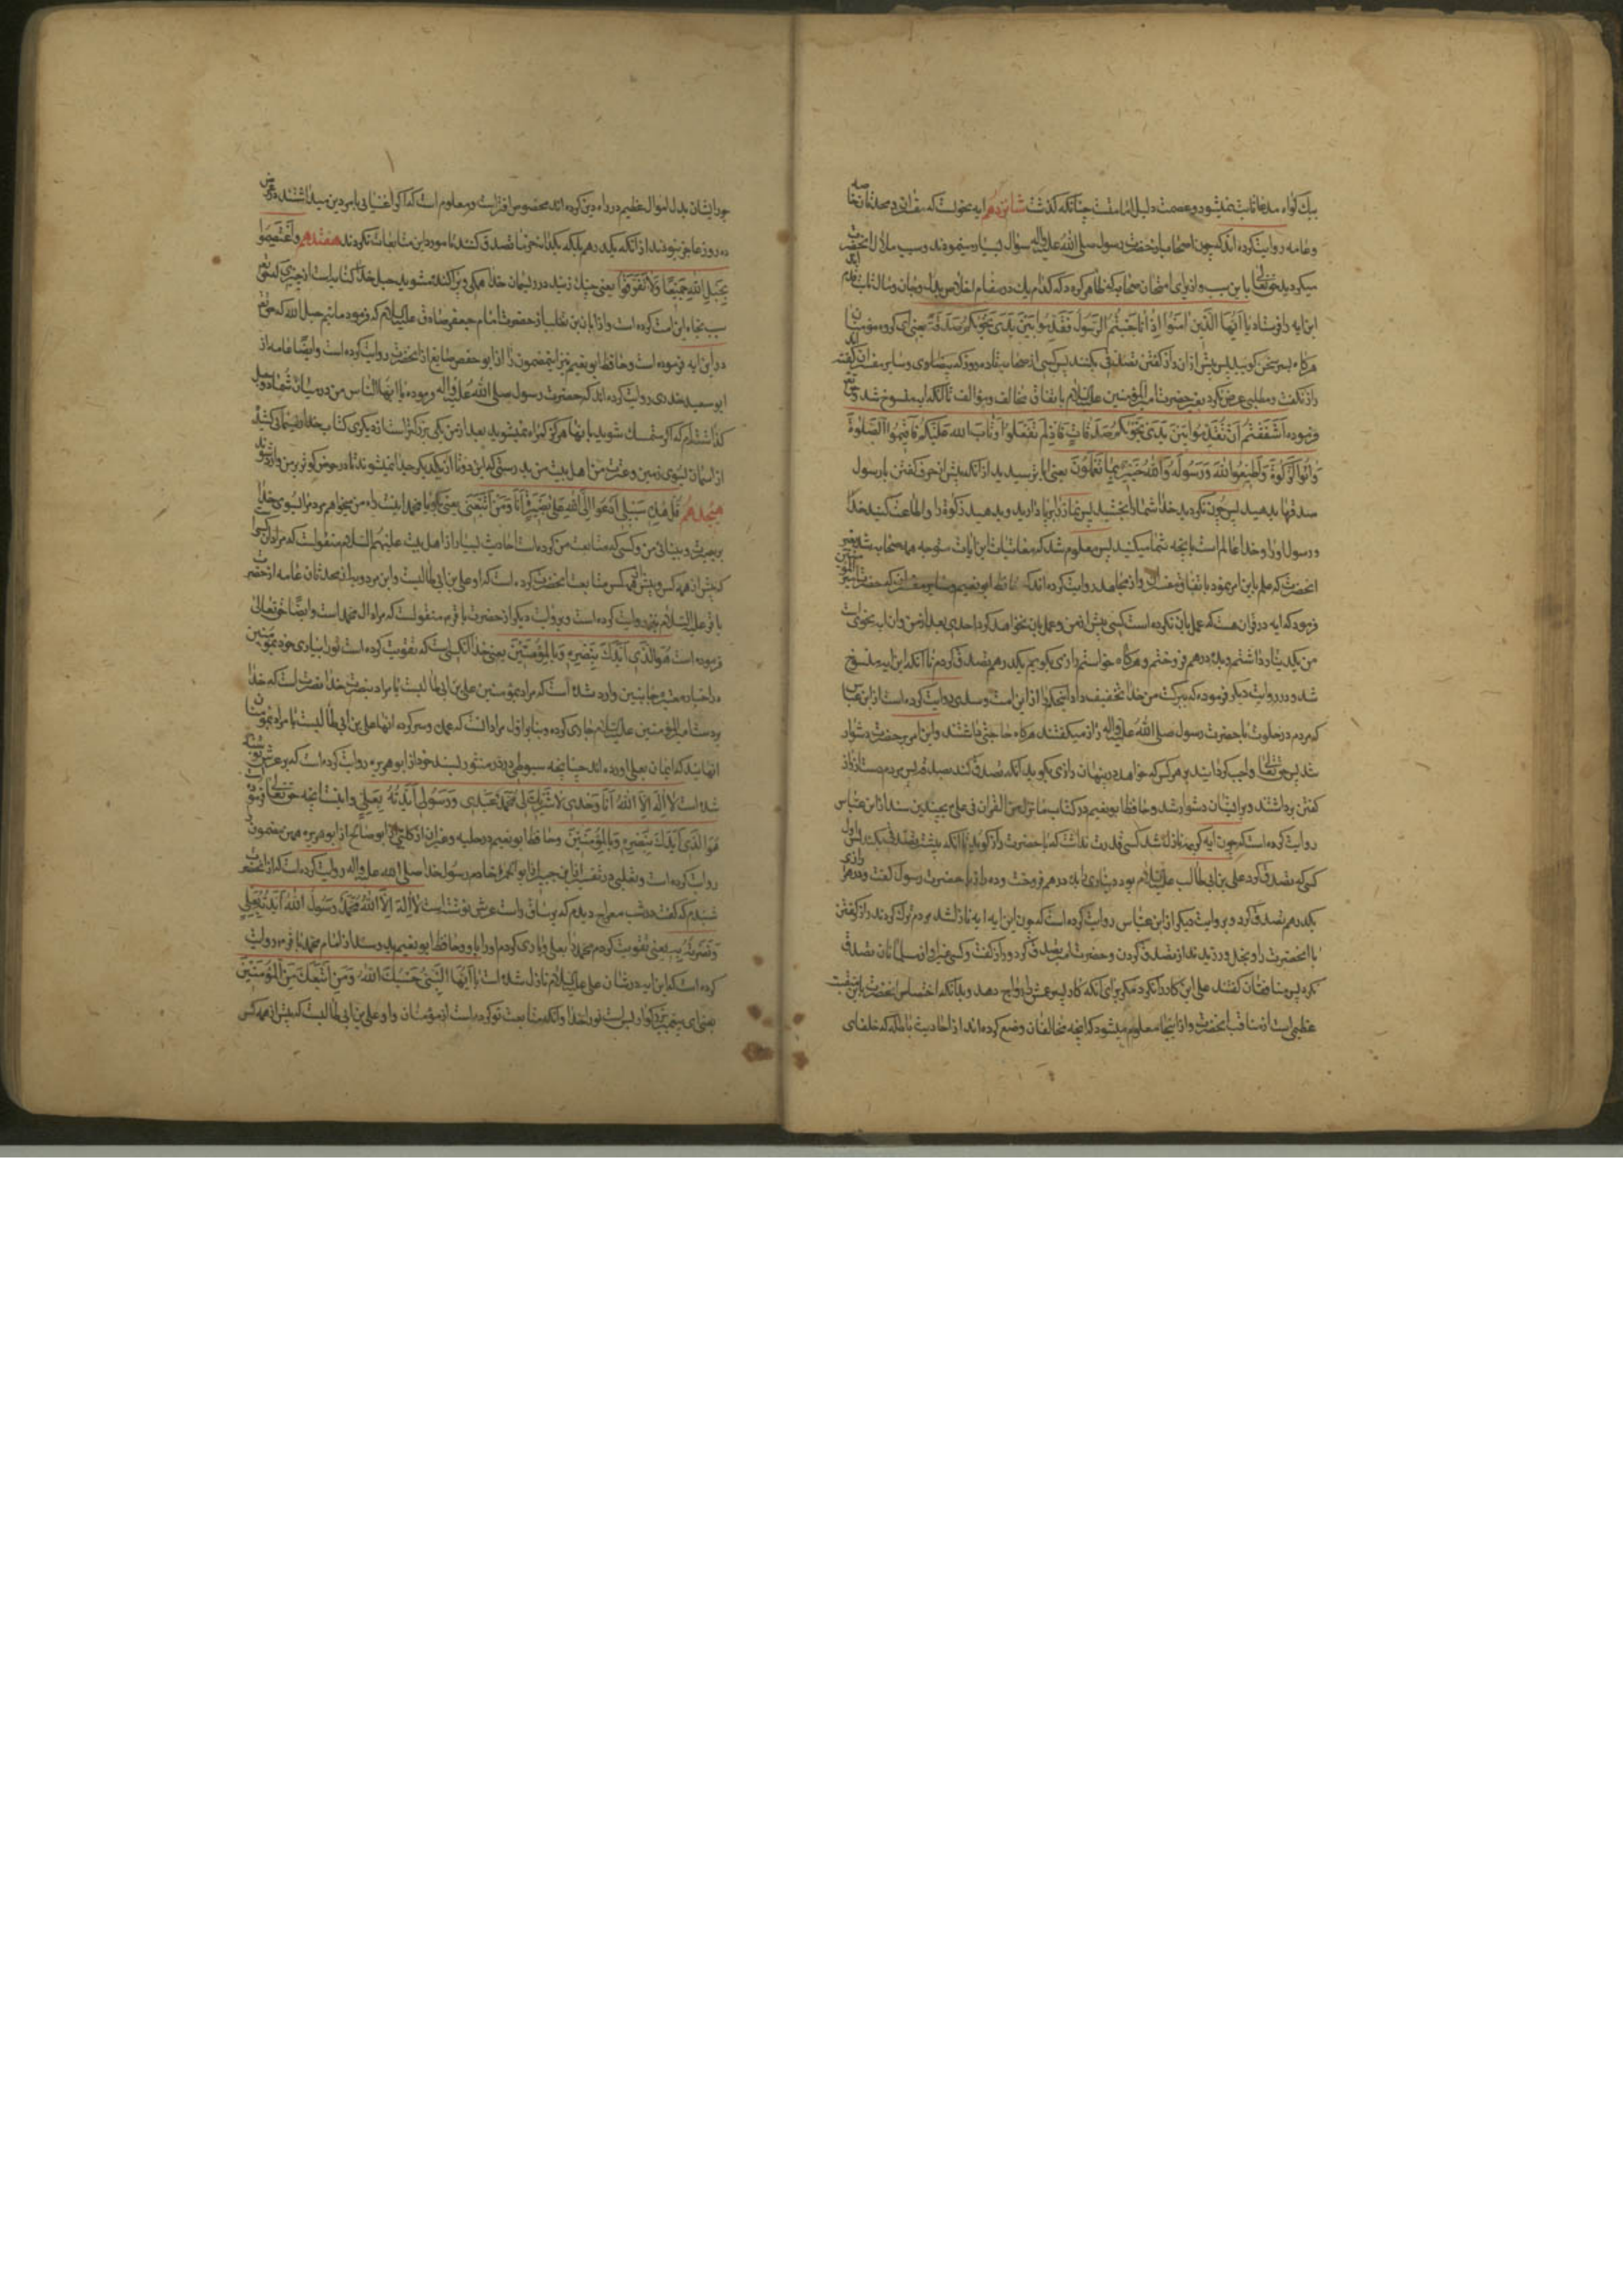 بیک گواه مدعا ثابت نمیشود و عصمت دلیل امامتست چنانکه گذشت شانزدهم آیه نجوی است که مفسران و محدثان خاصه
و عامه روایت کرده اند که چون اصحاب از حضرت رسول صلی الله علیه و آله سؤال بسیار مینمودند و سبب ملال آنحضرت
میگردید حق تعالی باین سبب و از برای امتحان صحابه که ظاهر گردد که کدام یک در مقام اخلاص
این آیه را فرستاد یا ایها الذین آمنوا اذا ناجیتم الرسول فقدموا بین یدی نجویکم صدقة یعنی ای گروه مؤمنان
هرگاه سخن گویید پس پیش از آن راز گفتن تصدقی بکنید پس کسی از صحابه تا ده روز که بیضاوی و سایر مفسران گفته اند
راز نگفت و مطلبی عرض نکرد بغیر حضرت امیر المؤمنین علیه السلام باتفاق مخالف و مؤالف تا آنکه آیه منسوخ شد و حق تعالی
فرمود ءاشفقتم ان تقدموا بین یدی نجویکم صدقات فاذ لم تفعلوا و تاب الله علیکم فاقیموا الصلوة
و آتوا الزکوة و اطیعوا الله و رسوله و الله خبیر بما تعملون یعنی آیا ترسیدید از آنکه پیش از حرف گفتن با رسول
صدقها بدهید پس چون نکردید و خدا شما را بخشید پس نماز را برپا دارید و بدهید زکوة را و اطاعت کنید خدا
و رسول او را و خدا عالم است بآنچه شما میکنید پس معلوم شد که معاتبات این آیات متوجه همه صحابه شد بغیر
آنحضرت که عمل باین امر نمود باتفاق مفسران و از مجاهد روایت کرده اند که حافظ ابو نعیم و سایر مفسران که حضرت امیر المؤمنین
فرمود که آیه در قرآن هست که عمل بآن نکرده است کسی پیش از من و عمل بآن نخواهد کرد احدی بعد از من و آن آیه نجوی است
من یک دینار داشتم و بده درهم فروختم و هرگاه خواستم رازی بگویم یک درهم تصدق کردم تا آنکه این آیه منسوخ
شد و در روایت دیگر فرمود که ببرکت من خدا تخفیف داد این حکم را از این امت و سدی روایت کرده است از ابن عباس
که مردم در خلوت با حضرت رسول صلی الله علیه و آله راز میگفتند هرگاه حاجتی داشتند و این امر بر حضرت دشوار
شد پس حق تعالی واجب گردانید بر هر کس که خواهد در پنهان رازی بگوید آنکه تصدق کند صدقه پس مردم دست از راز
گفتن برداشتند و بر ایشان دشوار شد و حافظ ابو نعیم در کتاب ما نزل من القرآن فی علی بچندین سند از ابن عباس
روایت کرده است که چون آیه کریمه نازل شد کسی قدرت نداشت که با حضرت راز گوید تا آنکه پیشتر تصدق بکند پس اول
کسی که تصدق کرد علی بن ابی طالب علیه السلام بود دیناری را بده درهم فروخت و ده راز با حضرت رسول گفت و در هر رازی
یک درهم تصدق کرد و بروایت دیگر از ابن عباس روایت کرده است که چون این آیه نازل شد مردم ترک کردند راز گفتن
با آنحضرت را و بخل ورزیدند از تصدق کردن و حضرت امیر تصدق کرد و راز گفت و کسی غیر او از مسلمانان تصدق
نکرد پس منافقان گفتند علی این کار را نکرد مگر برای آنکه کار پسر عمش را رواج دهد و بدانکه اختصاص آنحضرت باین منقبت
عظیمی است از مناقب آنحضرت و از اینجا معلوم میشود که آنچه مخالفان وضع کرده اند از احادیث باطله که خلفای
جور ایشان بذل اموال عظیم در راه دین کرده اند محض افتراست و معلوم است که اگر اغنیا
ده روز عاجز نبودند از آنکه یک درهم بلکه یک دانه خرما تصدق کنند تا مورد این معاتبات نگردند هفتدهم و اعتصموا
بحبل الله جمیعا و لا تفرقوا یعنی چنگ زنید در ریسمان خدا همگی و پراکنده مشوید حبل خدا کنایه است از چیزی که حق تعالی
سبب نجات این امت کرده است و از ابان بن تغلب از حضرت امام جعفر صادق علیه السلام که فرمود مائیم حبل الله که حق تعالی
در این آیه فرموده است و حافظ ابو نعیم نیز این مضمون را از ابو حفص صایغ از آنحضرت روایت کرده است و ایضا عامه از
ابو سعید خدری روایت کرده اند که حضرت رسول صلی الله علیه و آله فرمود یا ایها الناس من در میان شما دو حبل
گذاشته ام که اگر متمسک شوید بآنها هرگز گمراه نمیشوید بعد از من یکی بزرگتر است از دیگری کتاب خدا ریسمانی کشیده
از آسمان بسوی زمین و عترت من اهل بیت من بدرستی که این دو تا از یکدیگر جدا نمیشوند تا در حوض کوثر بر من وارد شوند
هیجدهم قل هذه سبیلی ادعوا الی الله علی بصیرة انا و من اتبعنی یعنی بگو یا محمد اینست راه من میخوانم مردم را بسوی خدا
بر بصیرت و بینائی من و کسی که متابعت من کرده است احادیث بسیار از اهل بیت علیهم السلام منقولست که مراد
که پیش از همه کس و بیش از همه کس متابعت آنحضرت کرده است که او علی بن ابی طالبست و ابن مردویه از محدثان عامه از حضرت
باقر علیه السلام نیز روایت کرده است و بروایت دیگر از حضرت باقر منقولست که مراد آل محمد است و ایضا حق تعالی
فرموده است هو الذی ایدک بنصره و بالمؤمنین یعنی خدا آنکسی است که تقویت کرده است ترا بیاری خود و بمؤمنین
و در اخبار معتبره جانبین وارد شده است که مراد بمؤمنین علی بن ابی طالبست یا مراد بنصرت خدا نصرت است که خدا
بردست امیر المؤمنین علیه السلام جاری کرده و بنابر اول مراد آنست که عمده و سرکرده آنها علی بن ابی طالبست یا مراد بمؤمنان
آنهایند که ایمان بعلی آورده اند چنانچه سیوطی در در منثور بسند خود از ابو هریره روایت کرده است که بر عرش نوشته
شده است لا اله الا الله انا وحدی لا شریک لی محمد عبدی و رسولی ایدته بعلی و اینست آنچه حق تعالی فرموده
هو الذی ایدک بنصره و بالمؤمنین و حافظ ابو نعیم در حلیه و غیر آن از کلبی از ابو صالح از ابو هریره همین مضمون را
روایت کرده است و ثعلبی در تفسیر از ابن جبیر از ابو الحمراء خادم رسول خدا صلی الله علیه و آله روایت کرده است که از آنحضرت
شنیدم که گفت در شب معراج دیدم که بر ساق راست عرش نوشته است لا اله الا الله محمد رسول الله ایدته بعلی
و نصرته به یعنی تقویت کردم محمد را بعلی و یاری کردم او را باو و حافظ ابو نعیم بدو سند از امام محمد باقر روایت
کرده است که این آیه در شان علی علیه السلام نازل شده است یا ایها النبی حسبک الله و من اتبعک من المؤمنین
یعنی ای پیغمبر بزرگوار بس است ترا خدا و آنکه متابعت تو کرده است از مؤمنان و او علی بن ابی طالبست که پیش از همه کس